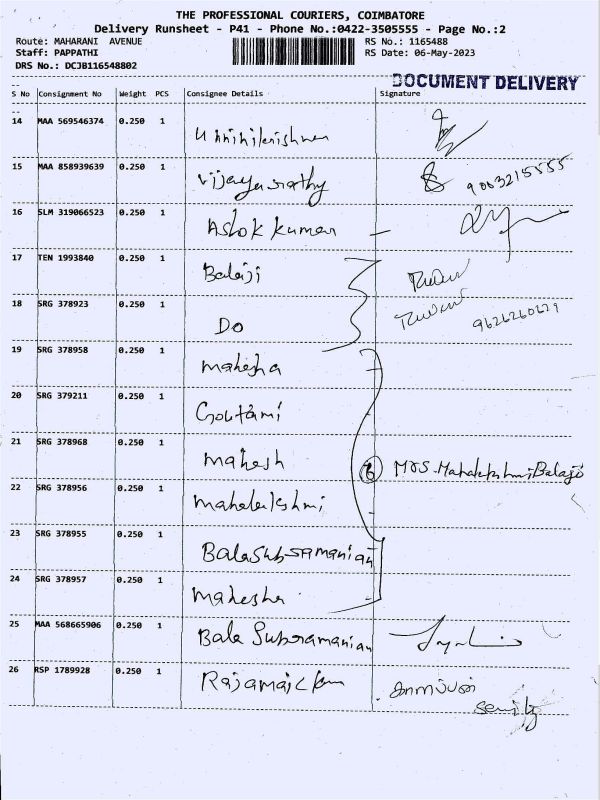 THE PROFESSIONAL COURIERS, COIMBATORE
Delivery Runsheet - P41 - Phone No.:0422-3505555 - Page No.:2
Route: MAHARANI AVENUE RS No.: 1165488
Staff: PAPPATHI RS Date: 06-May-2023
DRS No.: DCJB116548802
DOCUMENT DELIVERY
S No Consignment No Weight PCS Consignee Details Signature
14 MAA 569546374 0.250 1 Unnikrishnan
15 MAA 858939639 0.250 1 Vijayasrathy 9003215555
16 SLM 319066523 0.250 1 Ashok Kumar
17 TEN 1993840 0.250 1 Balaji
18 SRG 378923 0.250 1 Do 9626260629
19 SRG 378958 0.250 1 Mahesha
20 SRG 379211 0.250 1 Goutami
21 SRG 378968 0.250 1 Mahesh 6 Mrs. Mahalakshmi Balaji
22 SRG 378956 0.250 1 Mahalakshmi
23 SRG 378955 0.250 1 Balasubramanian
24 SRG 378957 0.250 1 Mahesha
25 MAA 568665906 0.250 1 Bala Subramanian
26 RSP 1789928 0.250 1